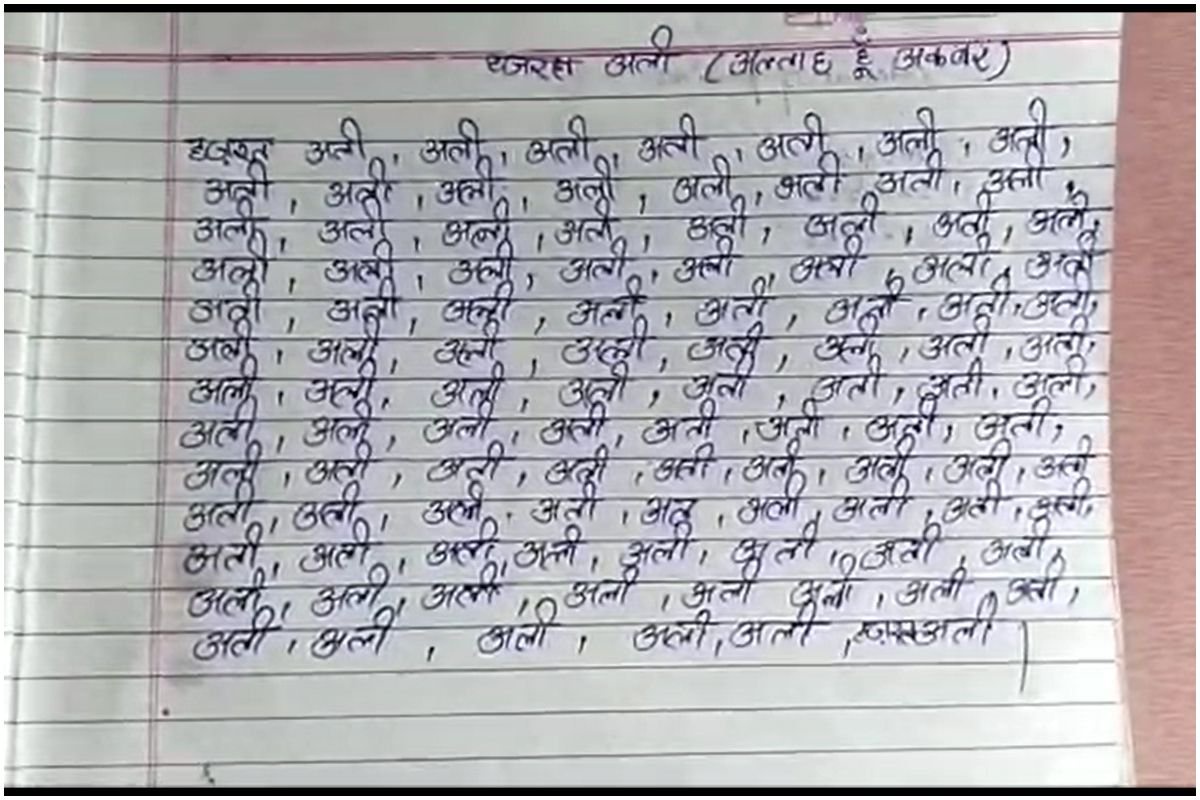 हजरत अली (अल्लाह हूँ अकबर)
हजरत अली, अली, अली, अली, अली, अली, अली,
अली, अली, अली, अली, अली, अली अली, अली,
अली, अली, अली, अली, अली, अली, अली, अली,
अली, अली, अली, अली, अली, अली, अली, अली
अली, अली, अली, अली, अली, अली, अली, अली,
अली, अली, अली, अली, अली, अली, अली, अली,
अली, अली, अली, अली, अली, अली, अली, अली,
अली, अली, अली, अली, अली, अली, अली, अली,
अली, अली, अली, अली, अली, अली, अली, अली, अली
अली, अली, अली, अली, अल, अली, अली, अली, अली,
अली, अली, अली, अली, अली, अली, अली, अली,
अली, अली, अली, अली, अली अली, अली, अली,
अली, अली, अली, अली, अली, अली।